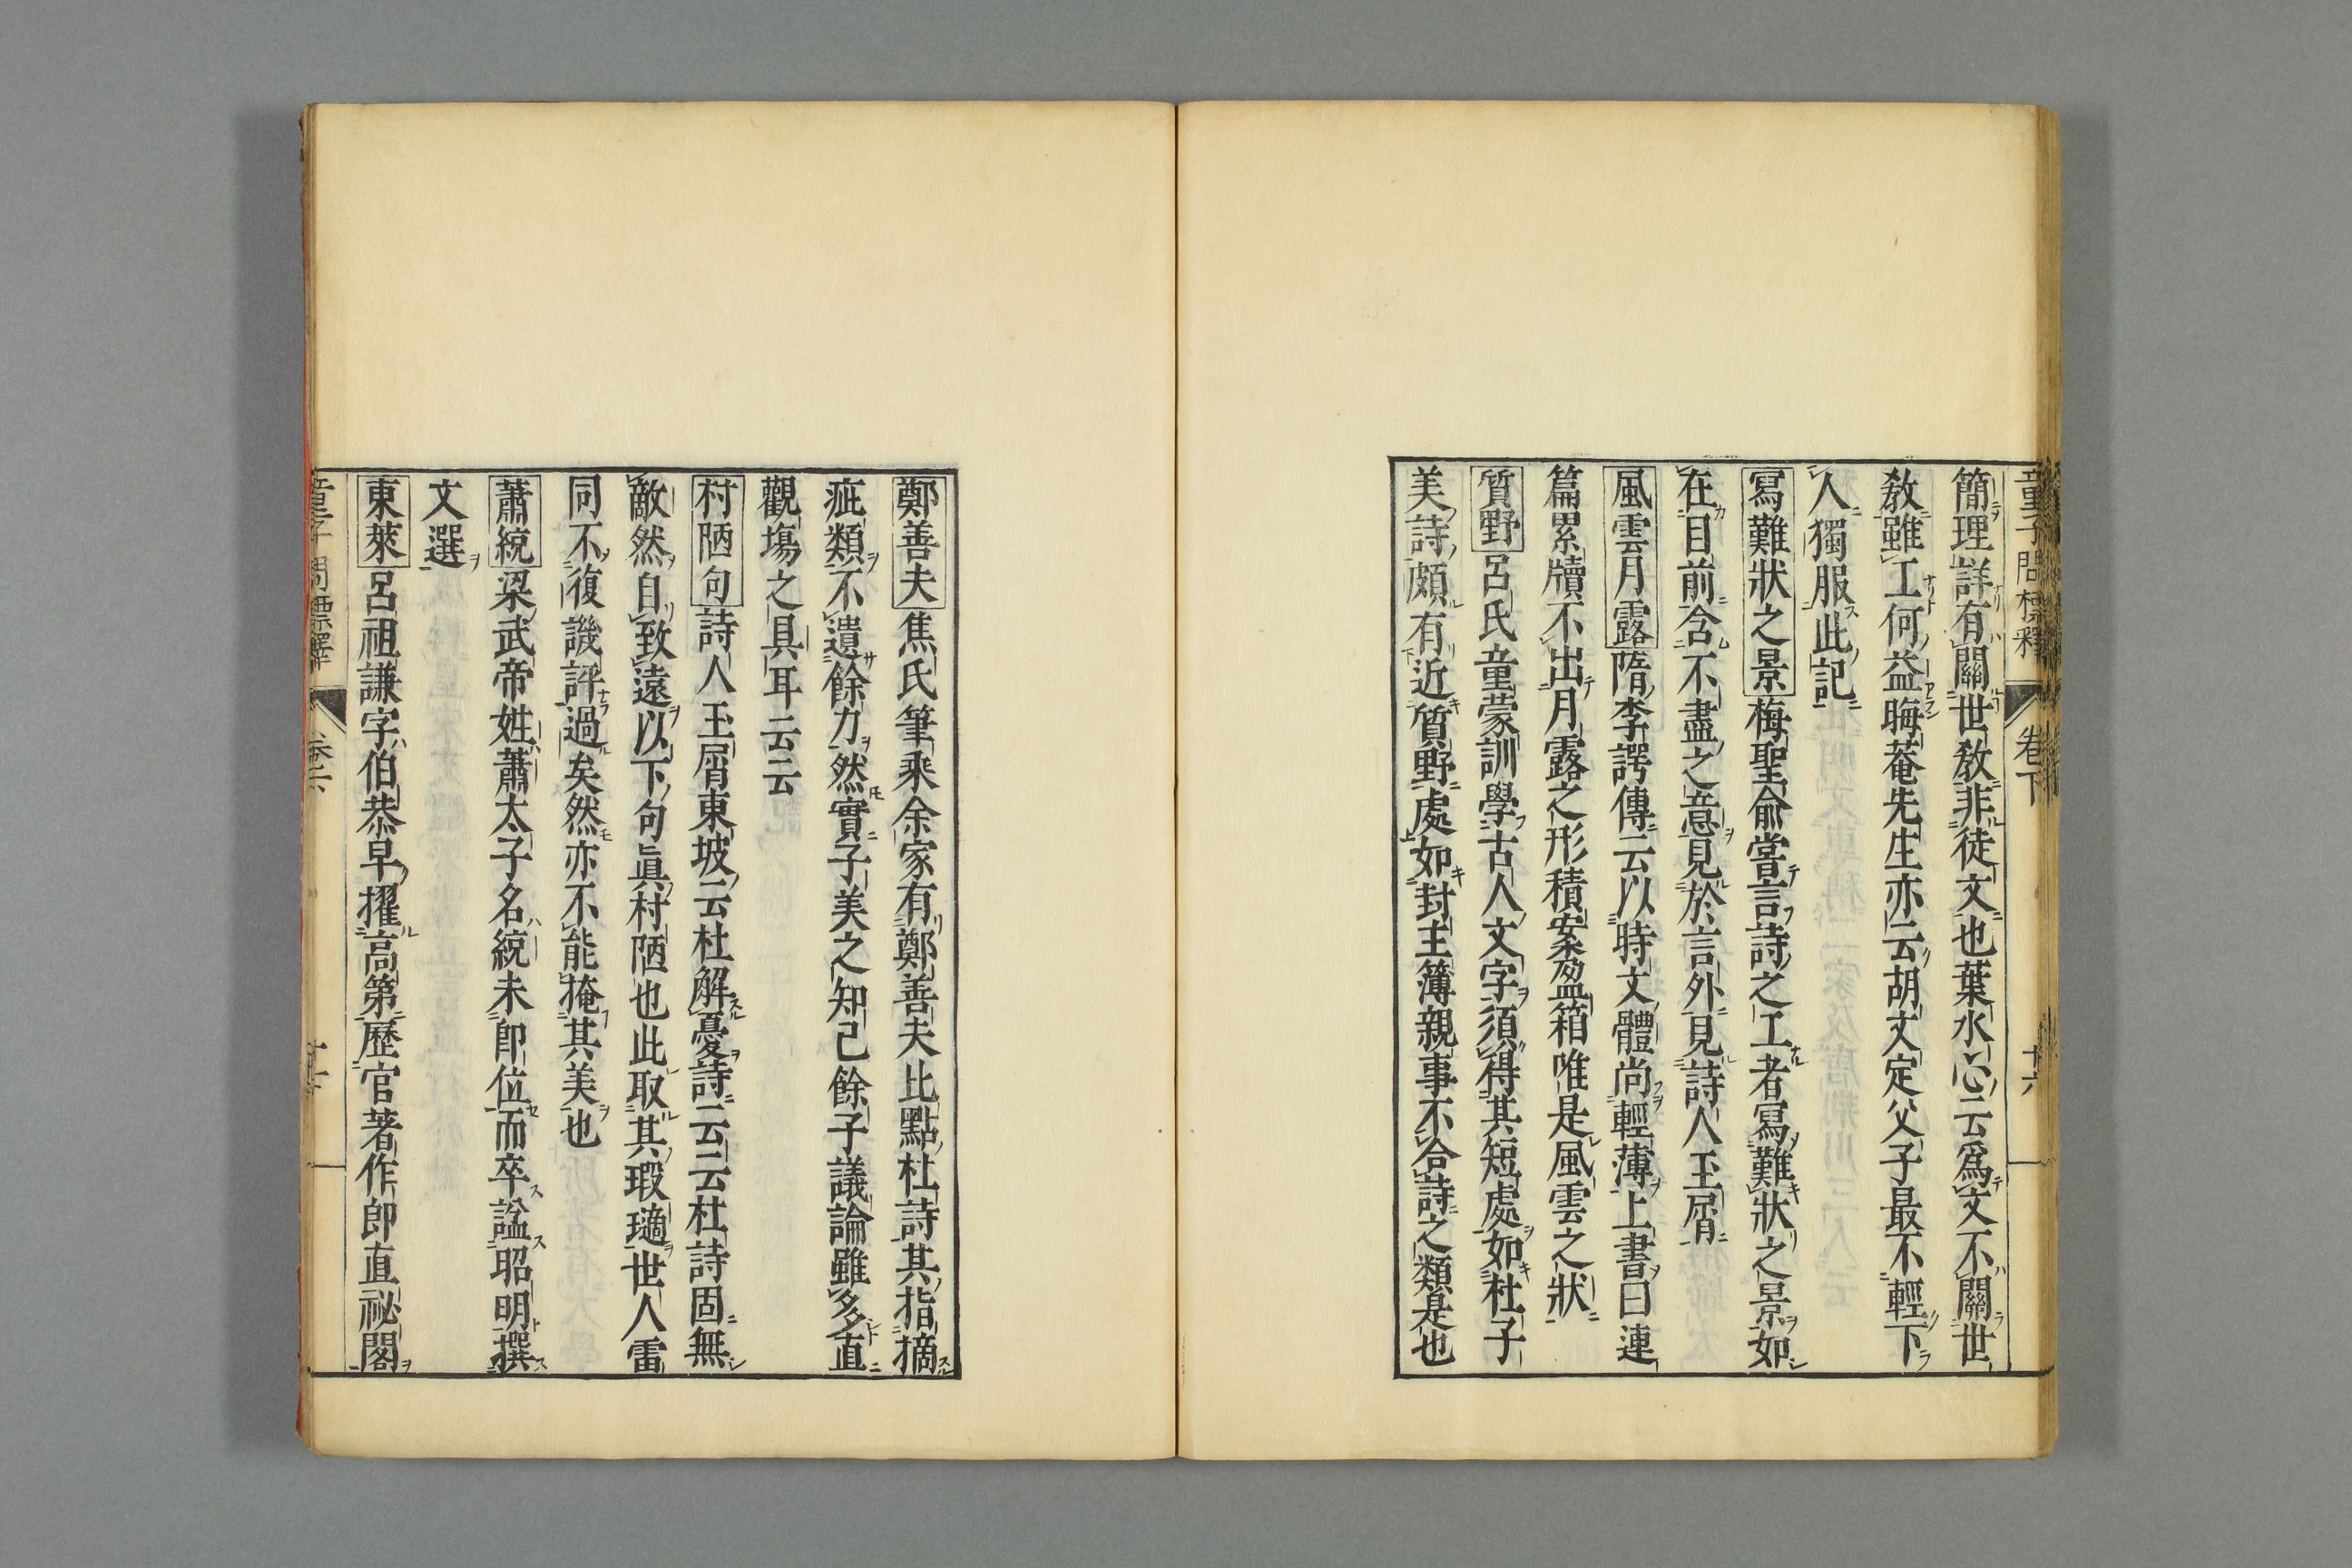 童子問標釋 卷下 十六
簡理詳有關世教非徒文也葉水心云爲文不關世
教雖工何益晦菴先生亦云胡文定父子最不輕下
人獨服此記
寫難狀之景梅聖俞嘗言詩之工者寫難狀之景如
在目前含不盡之意見於言外見詩人玉屑
風雲月露隋李諤傳云以時文體尚輕薄上書曰連
篇累牘不出月露之形積案盈箱唯是風雲之狀
質野呂氏童蒙訓學古人文字須得其短處如杜子
美詩頗有近質野處如封主簿親事不合詩之類是也
鄭善夫焦氏筆乘余家有鄭善夫比點杜詩其指摘
疵類不遺餘力然實子美之知己餘子議論雖多直
觀塲之具耳云云
村陋句詩人玉屑東坡云杜解憂詩云云杜詩固無
敵然自致遠以下句眞村陋也此取其瑕璊世人雷
同不復譏評過矣然亦不能掩其美也
蕭統梁武帝姓蕭太子名統未卽位而卒諡昭明撰
文選
東萊呂祖謙字伯恭早擢高第歷官著作郎直祕閣
童子問標釋